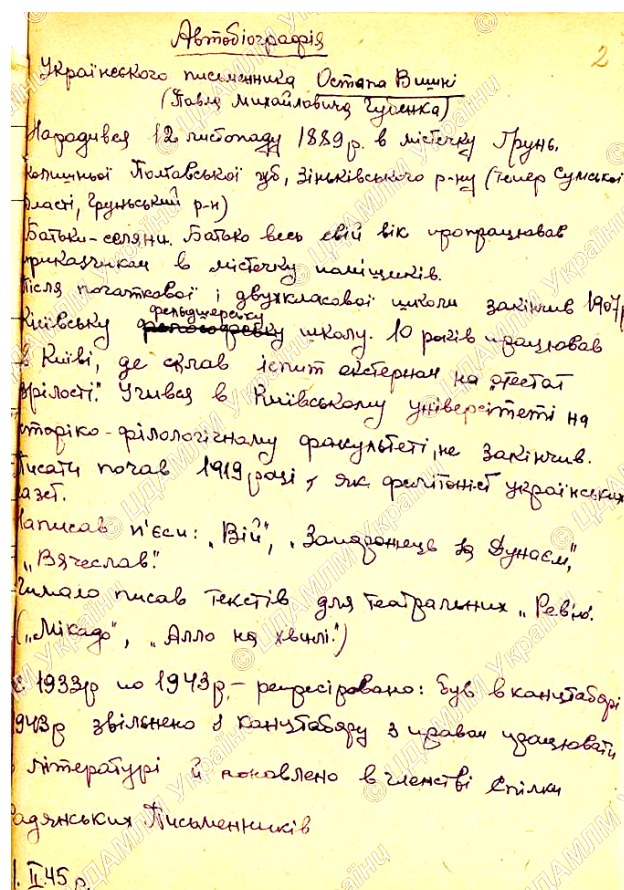 2
Автобіографія
Українського письменника Остапа Вишні
(Павла Михайловича Губенка)
Народився 12 листопаду 1889 р. в містечку Грунь,
колишньої Полтавської губ, Зіньківського р-ну (тепер Сумської
бласті, Груньський р-н)
Батьки-селяни. Батько весь свій вік пропрацював
приказчиком в містечку поміщиків.
Після початкової і двухкласової школи закінчив 1907р
фельдшерську
Київську школу. 10 років працював
в Києві, де склав іспит екстерном на „атестат
зрілості." Учився в Київському університеті на
сторіко-філологічному факультеті, не закінчив.
Писати почав 1919 році, як фейлітоніст українських
газет.
Написав п'єси: „Вій", „Запорожець за Дунаєм",
„Вячеслав".
Чимало писав текстів для театральних „Рев'ю".
(„Мікадо", „Алло на хвилі")
З 1933р по 1943р,- репресіровано: був в концтаборі
1943р звільнено з концтабору з правом працювати
в літературі й поновлено в членстві Спілки
Радянських Письменників
1. II.45 р.
© ЦДАМЛМ України